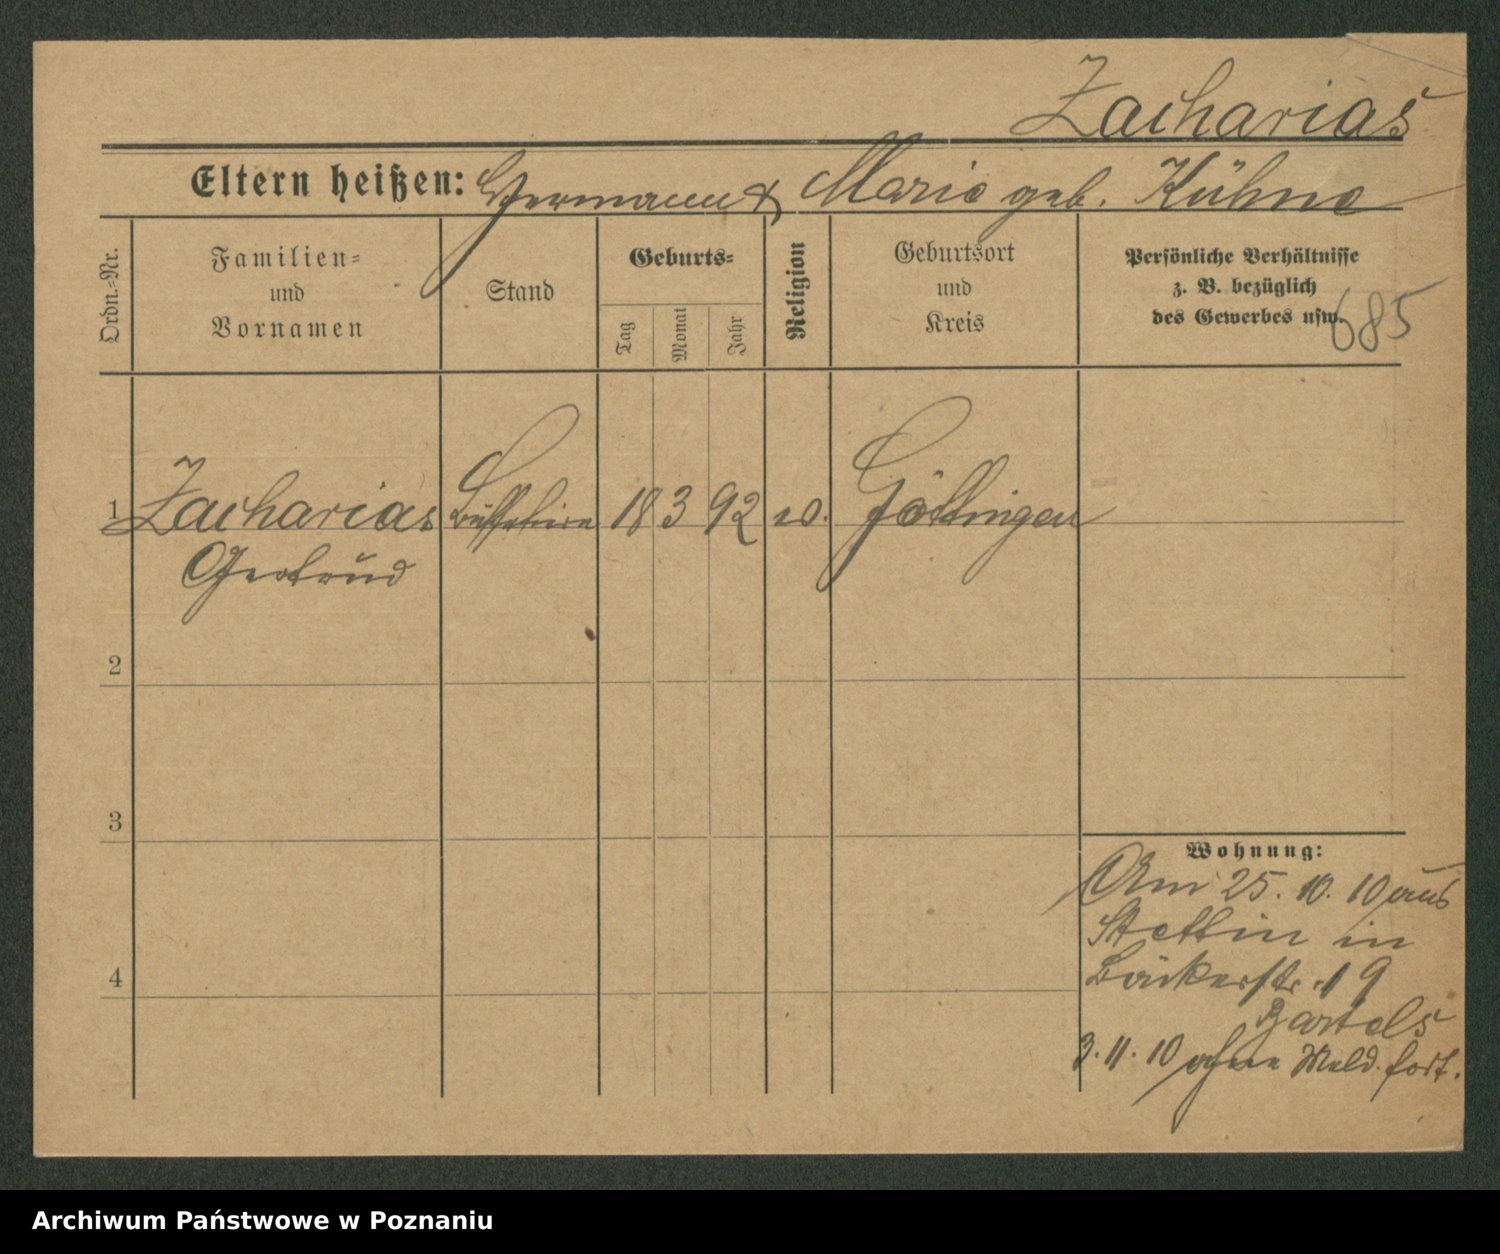 Zacharias
Eltern heißen: Hermann & Marie geb. Kühne
Ordn.-Nr.
Familien-
und
Vornamen
Stand
Geburts-
Tag
Monat
Jahr
Religion
Geburtsort
und
Kreis
Persönliche Verhältnisse
z. B. bezüglich
des Gewerbes usw.
685
1 Zacharias 18 3 92 ev. Göttingen
Gertrud
2
3
4
Wohnung:
Am 25. 10. 10 aus
Stettin in
Bäckerstr. 19
Bartels
3. 11. 10 ohne Meld. fort.
Archiwum Państwowe w Poznaniu